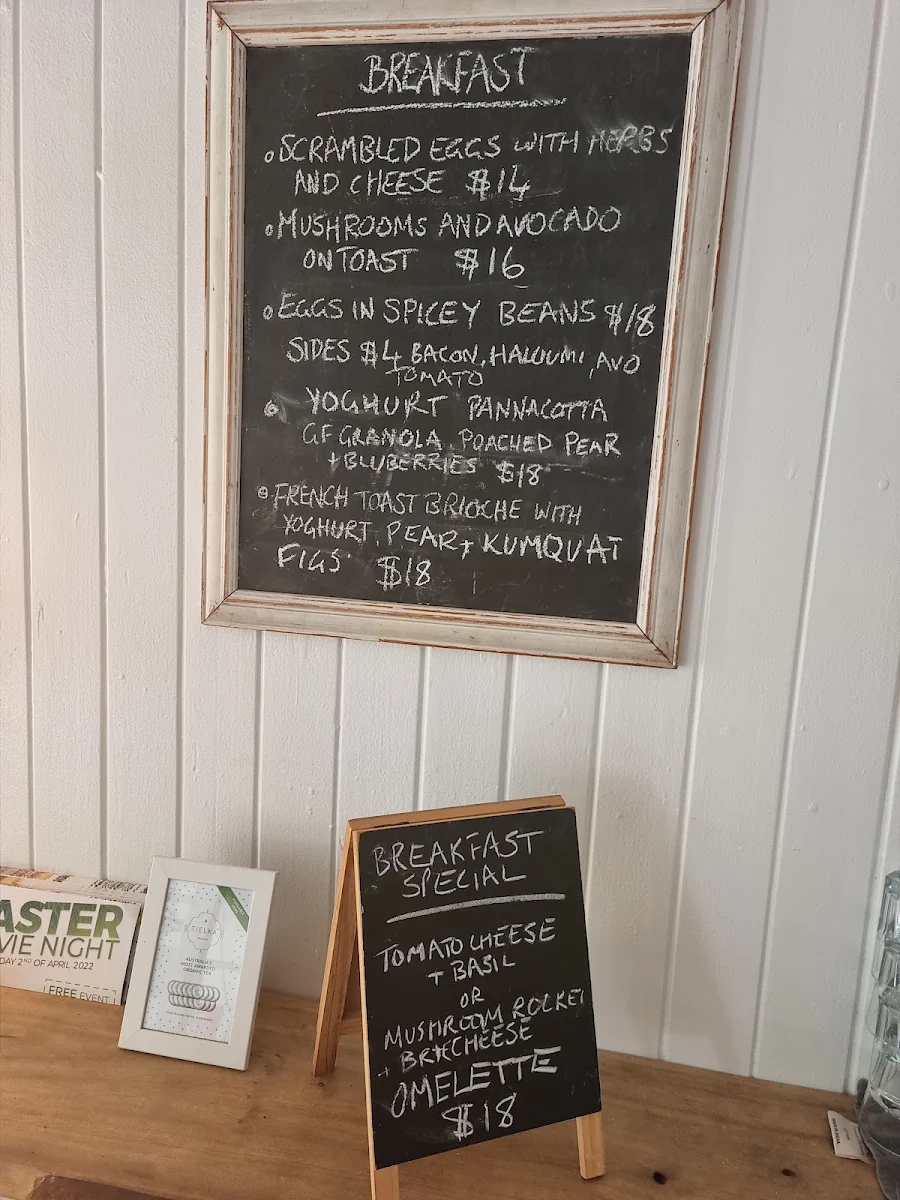 BREAKFAST
SCRAMBLED EGGS WITH HERBS
AND CHEESE $14
MUSHROOMS AND AVOCADO
ON TOAST $16
EGGS IN SPICEY BEANS $18
SIDES $4 BACON, HALOUMI, AVO
TOMATO
YOGHURT PANNACOTTA
GF GRANOLA POACHED PEAR
+ BLUBERRIES $18
FRENCH TOAST BRIOCHE WITH
YOGHURT, PEAR + KUMQUAT
FIGS $18
BREAKFAST
SPECIAL
TOMATO CHEESE
+ BASIL
OR
MUSHROOM ROCKET
+ BRIE CHEESE
OMELETTE
$18
ASTER
VIE NIGHT
DAY 2ND OF APRIL 2022
FREE EVENT
TIELKA
AUSTRALIA'S
MOST AWARDED
ORGANIC TEA